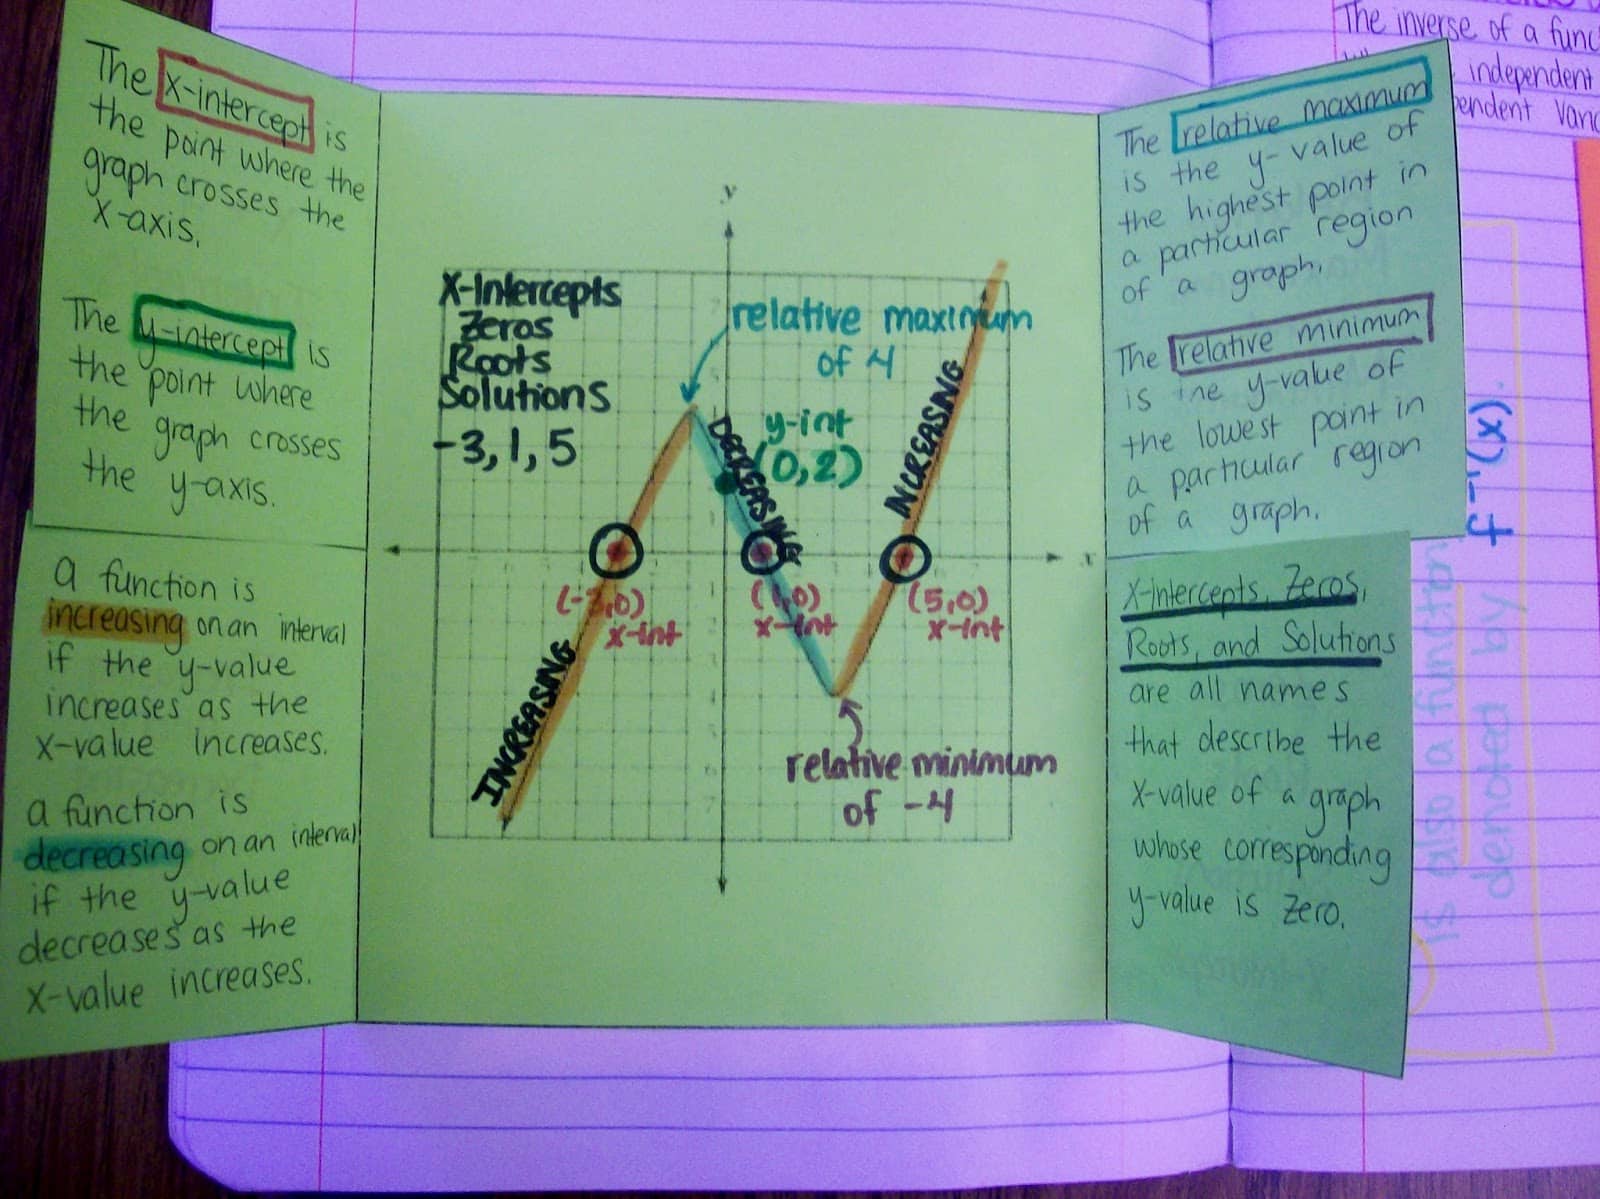 The x-intercept is
the point where the
graph crosses the
x-axis.
The y-intercept is
the point where
the graph crosses
the y-axis.
a function is
increasing on an interval
if the y-value
increases as the
x-value increases.
a function is
decreasing on an interval
if the y-value
decreases as the
x-value increases.
y
X-Intercepts
Zeros
Roots
Solutions
-3, 1, 5
relative maximum
of 4
y-int
(0,2)
INCREASING
DECREASING
INCREASING
x
(-3,0)
x-int
(1,0)
x-int
(5,0)
x-int
relative minimum
of -4
The relative maximum
is the y-value of
the highest point in
a particular region
of a graph.
The relative minimum
is the y-value of
the lowest point in
a particular region
of a graph.
X-Intercepts, Zeros,
Roots, and Solutions
are all names
that describe the
x-value of a graph
whose corresponding
y-value is zero.
The inverse of a func
independent
pendent
is also a function
denoted by f⁻¹(x).